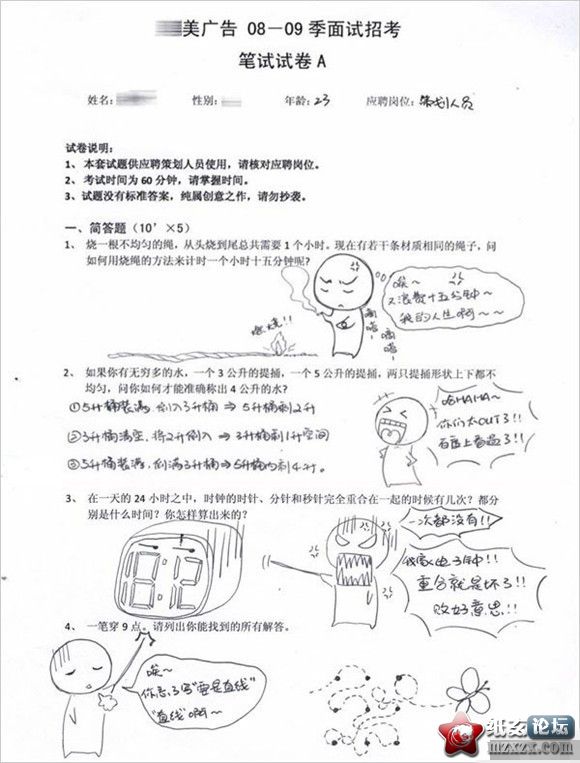 美广告 08－09 季面试招考
笔试试卷 A
姓名: 性别: 年龄: 23 应聘岗位: 策划人员
试卷说明:
1、 本套试题供应聘策划人员使用，请核对应聘岗位。
2、 考试时间为 60 分钟，请掌握时间。
3、 试题没有标准答案，纯属创意之作，请勿抄袭。
一、简答题（10’×5）
1、 烧一根不均匀的绳，从头烧到尾总共需要 1 个小时。现在有若干条材质相同的绳子，问
如何用烧绳的方法来计时一个小时十五分钟呢?
唉~
又浪费十五分钟~
我的人生啊~~
嘀嗒、
嘀嗒、
燃烧!!
2、 如果你有无穷多的水，一个 3 公升的提捅，一个 5 公升的提捅，两只提捅形状上下都不
均匀，问你如何才能准确称出 4 公升的水?
①5升桶装满，倒入3升桶⇒5升桶剩2升
②3升桶清空，将2升倒入⇒3升桶剩1升空间
③5升桶装满，倒满3升桶⇒5升桶内剩4升。
哈HAHA~
你们太OUT了!!
百度上看过了!!
3、 在一天的 24 小时之中，时钟的时针、分针和秒针完全重合在一起的时候有几次? 都分
别是什么时间? 你怎样算出来的?
一次都没有!!
我家电子钟!!
重合就是坏了!!
败好意思!!
18:12
4、 一笔穿 9 点。请列出你能找到的所有解答。
唉~
你忘了写"要是直线"
"直线"啊~~
论坛
mzxzx.com